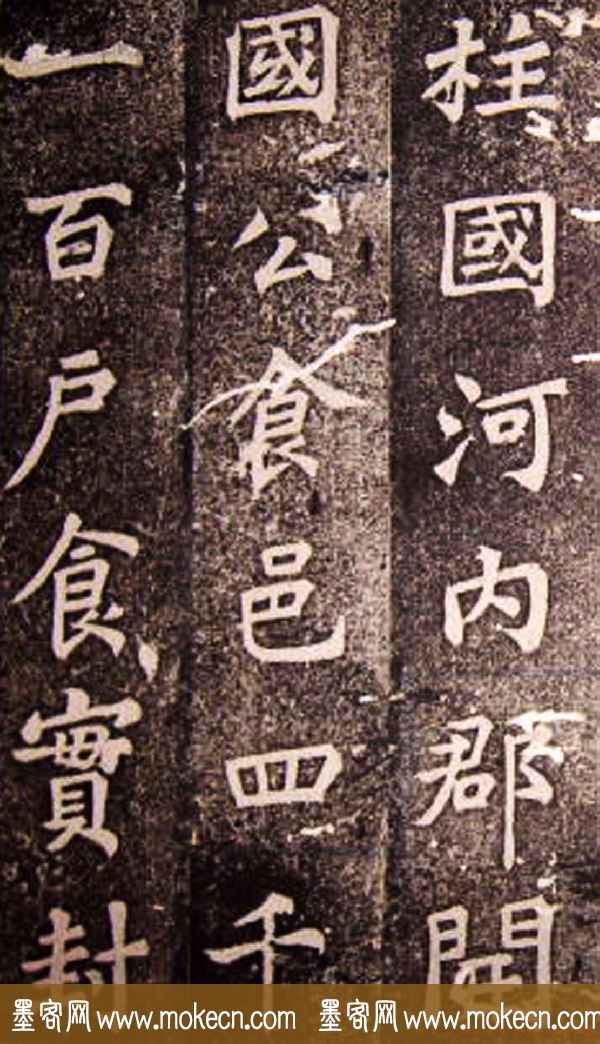 柱國河内郡開
國公食邑四千
一百户食實封
墨客网 www.mokecn.com 墨客网 www.mokecn.com